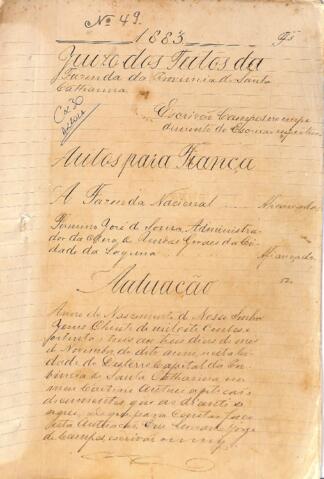 Nº 49.
1883
Juizo dos Feitos da
Fazenda da Provincia de Santa
Catharina
Cx 30
Escrivão Campos no impe
dimento do
Autos para Fiança
A Fazenda Nacional
Afiançada
José de Souza, Administra
dor da Meza de Rendas Geraes da Ci
dade da Laguna
Afiançado
Autuação
Anno do Nascimento de Nosso Senhor
Jesus Christo de mil oito Centos e
oitenta e tres aos dias do mez
de Novembro do dito anno, nesta Ci
dade do Desterro Capital da Pro
vincia de Santa Catharina em
meu Cartorio Autuei a petição e
documentos que ao diante se
segue. E que para Constar faço
esta Autuação. Eu
de Campos, escrivão